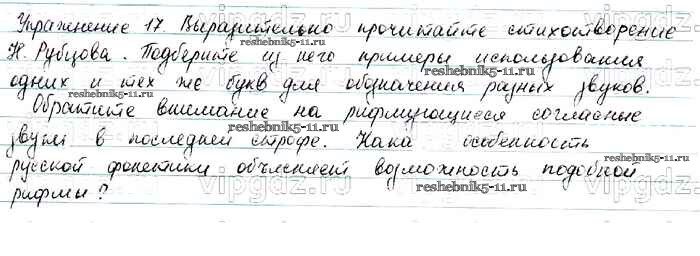 Упражнение 17. Выразительно прочитайте стихотворение
Н. Рубцова. Подберите из него примеры использования
reshebnik5-11.ru
reshebnik5-11.ru
одних и тех же букв для обозначения разных звуков.
vipgdz.ru
vipgdz.ru
Обратите внимание на рифмующиеся согласные
reshebnik5-11.ru
звуки в последней строфе. Кака особенность
reshebnik5-11.ru
русской фонетики объясняет возможность подобной
vipgdz.ru
vipgdz.ru
reshebnik5-11.ru
рифмы?